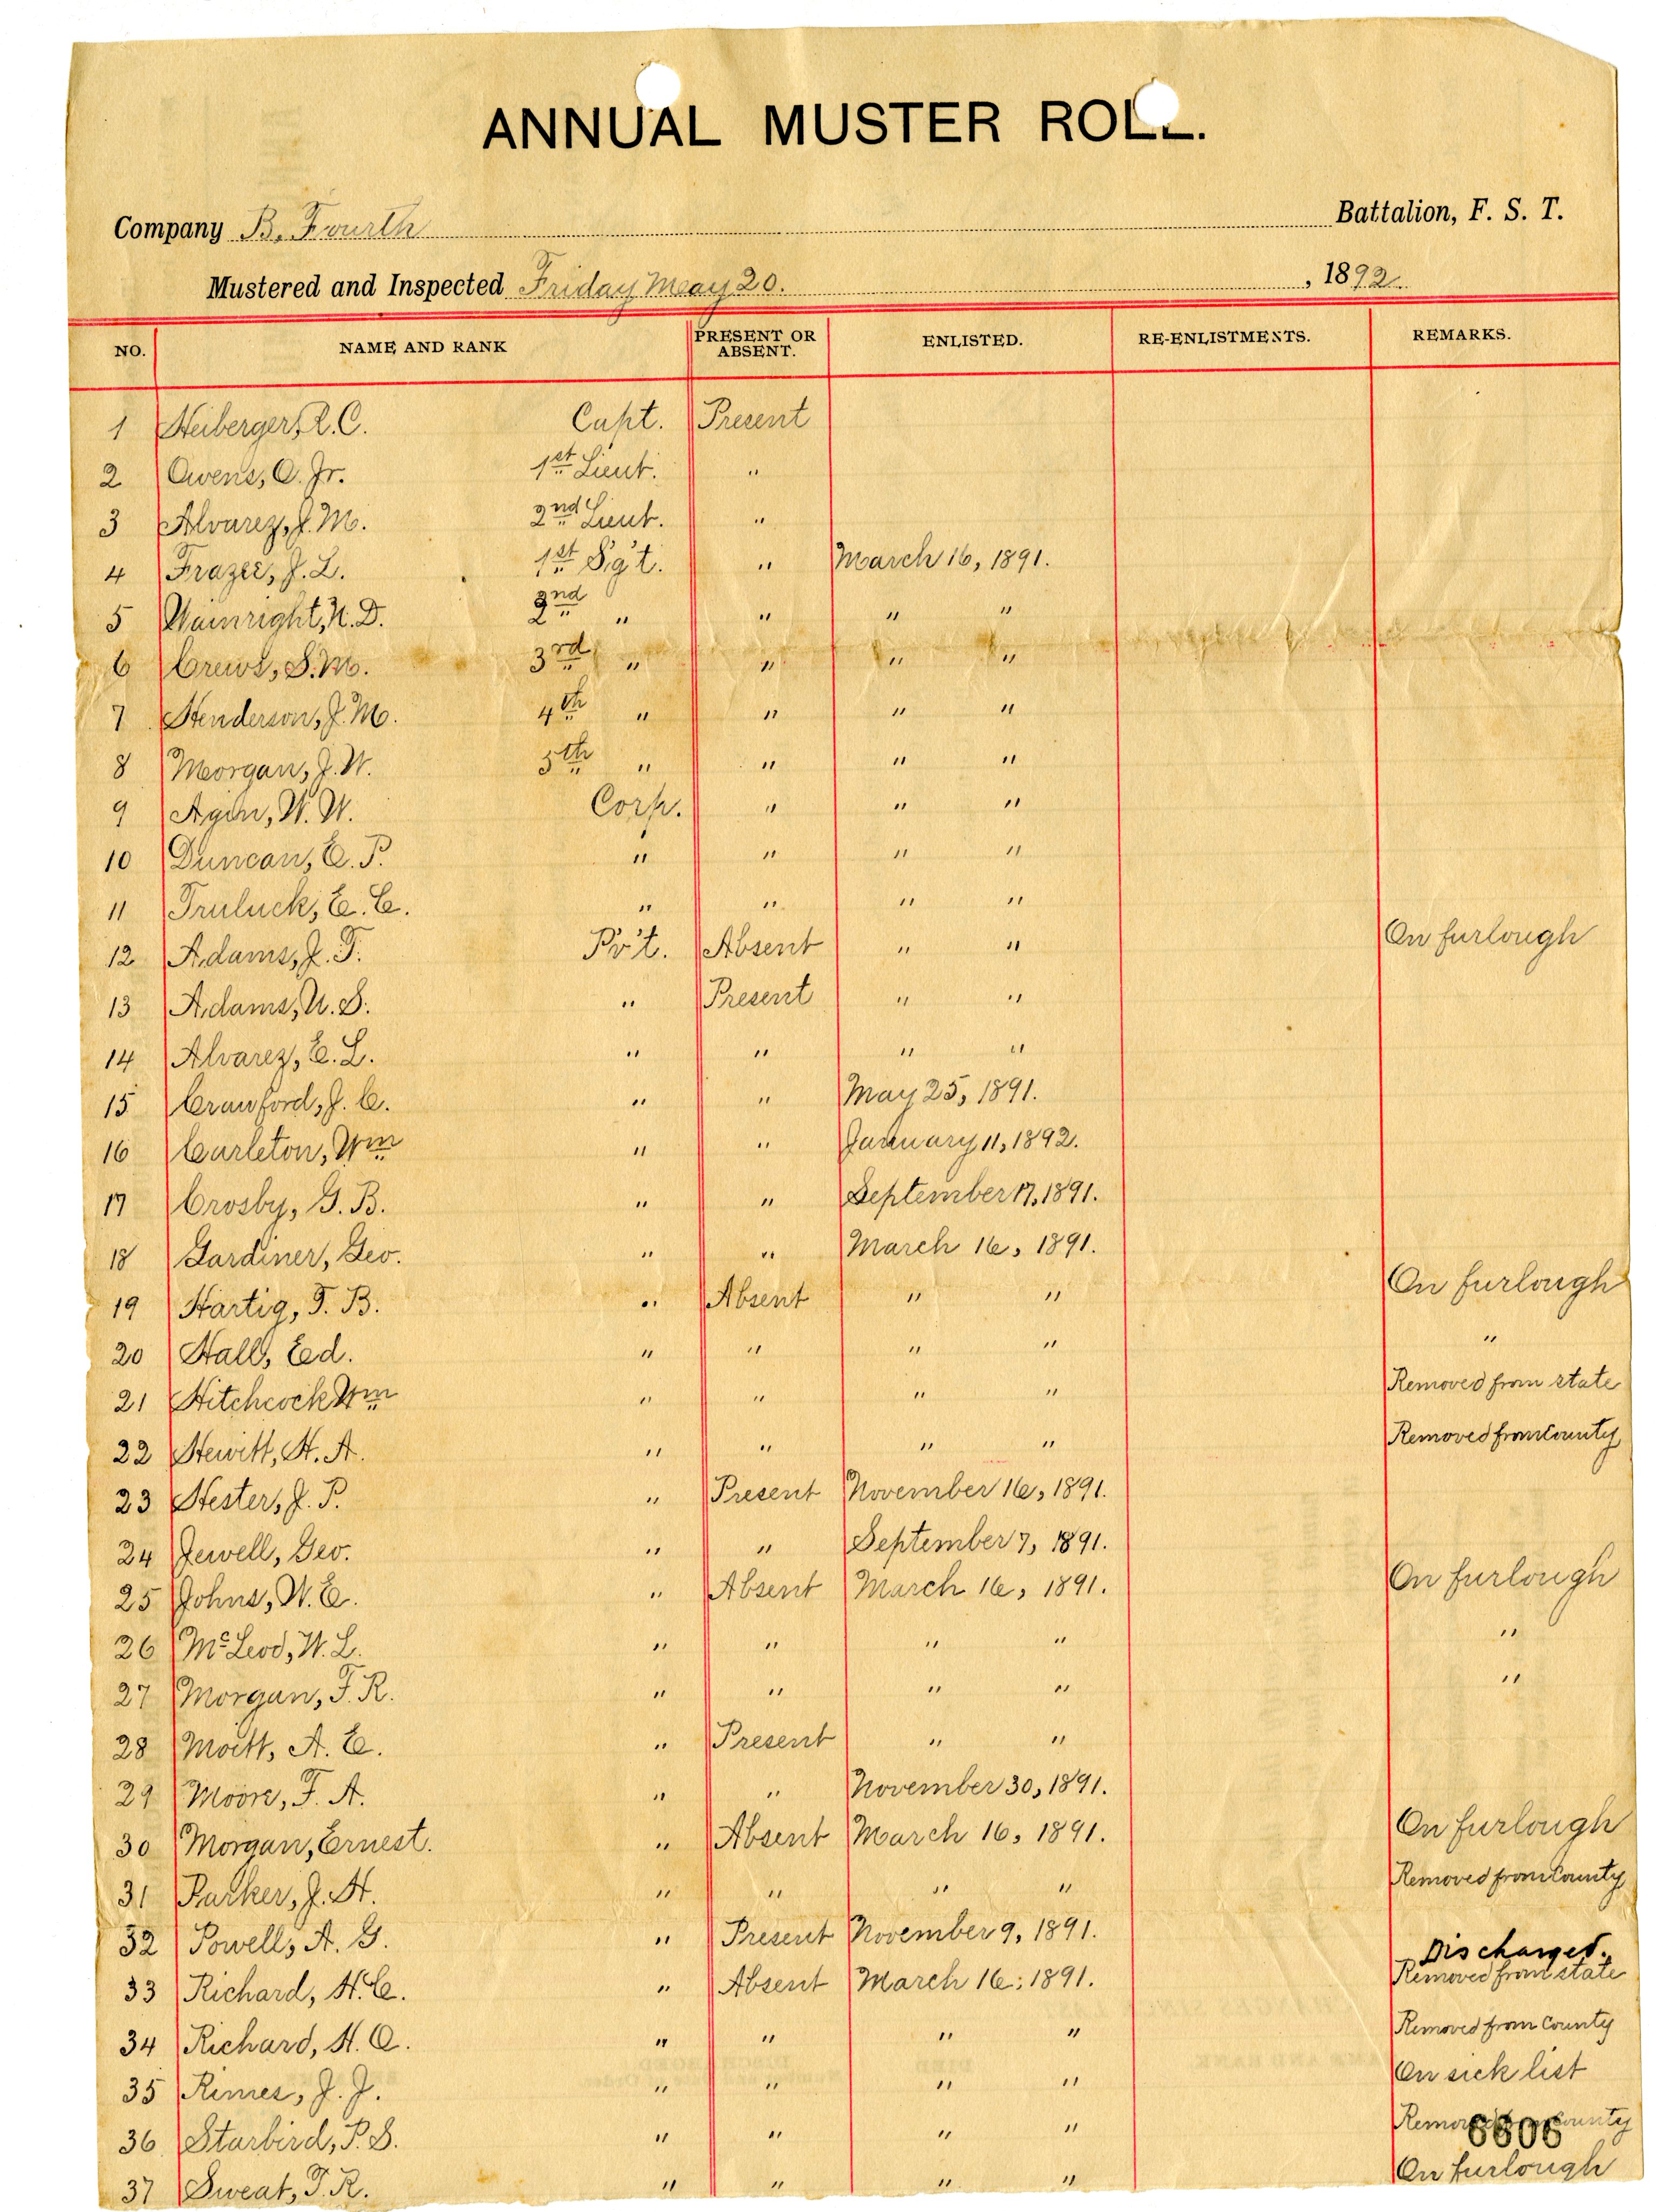 ANNUAL MUSTER ROLL.
Company B. Fourth Battalion, F. S. T.
Mustered and Inspected Friday May 20. , 1892.
NO. NAME AND RANK PRESENT OR ABSENT. ENLISTED. RE-ENLISTMENTS. REMARKS.
1 Neiberger, R.C. Capt. Present
2 Owens, O. Jr. 1st Lieut. "
3 Alvarez, J. M. 2nd Lieut. "
4 Frazee, J. L. 1st Sg't. " March 16, 1891.
5 Wainright, N. D. 2nd " " " "
6 Crews, S. M. 3rd " " " "
7 Henderson, J. M. 4th " " " "
8 Morgan, J. W. 5th " " " "
9 W. W. Corp. " " "
10 Duncan, E. P. " " " "
11 Truluck, E. E. " " " "
12 Adams, J. T. Pv't. Absent " " On furlough
13 Adams, U. S. " Present " "
14 Alvarez, E. L. " " " "
15 Crawford, J. C. " " May 25, 1891.
16 Carleton, Wm " " January 11, 1892.
17 Crosby, G. B. " " September 17, 1891.
18 Gardiner, Geo. " " March 16, 1891.
19 Hartig, T. B. " Absent " " On furlough
20 Hall, Ed. " " " " "
21 Hitchcock Wm " " " " Removed from state
22 Hewitt, H. A. " " " " Removed from County
23 Hester, J. P. " Present November 16, 1891.
24 Jewell, Geo. " " September 7, 1891.
25 Johns, W. E. " Absent March 16, 1891. On furlough
26 McLeod, W. L. " " " " "
27 Morgan, T. R. " " " " "
28 Mott, A. E. " Present " "
29 Moore, F. A. " " November 30, 1891.
30 Morgan, Ernest. " Absent March 16, 1891. On furlough
31 Parker, J. H. " " " " Removed from County
32 Powell, A. G. " Present November 9, 1891.
Discharged.
33 Richard, H. C. " Absent March 16, 1891. Removed from state
34 Richard, H. O. " " " " Removed from County
35 Rimes, J. J. " " " " On sick list
36 Starbird, P. S. " " " " Removed from County
8806
37 Sweat, T. R. " " " " On furlough